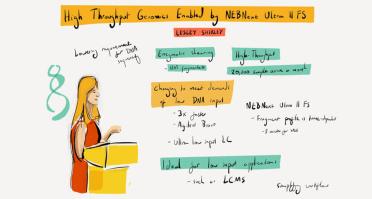 High Throughput Genomics Enabled by NEBNext Ultra II FS
LESLEY SHIRLEY
Lowering requirement
for DNA
Enzymatic shearing
High-Throughput
20,000 samples across a month
Changing to meet demands
of low DNA input
- 3x faster
- Agilent Bravo
- Ultra low input LC
NEBNext Ultra II FS
- Fragment profile is time-dependent
Ideal for low input applications
- such as LCMS
Simplify workflow